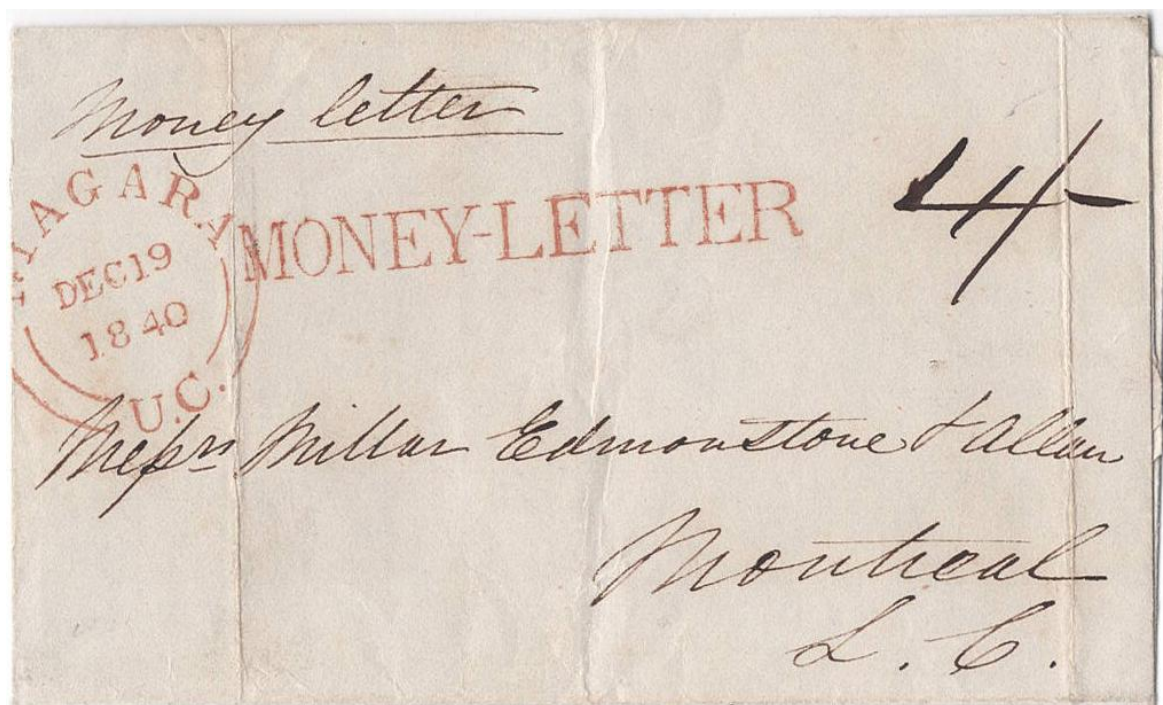 Money letter
NIAGARA
DEC 19
1840
U.C.
MONEY-LETTER
4/-
Messrs Millar Edmonstone & Allan
Montreal
L. C.